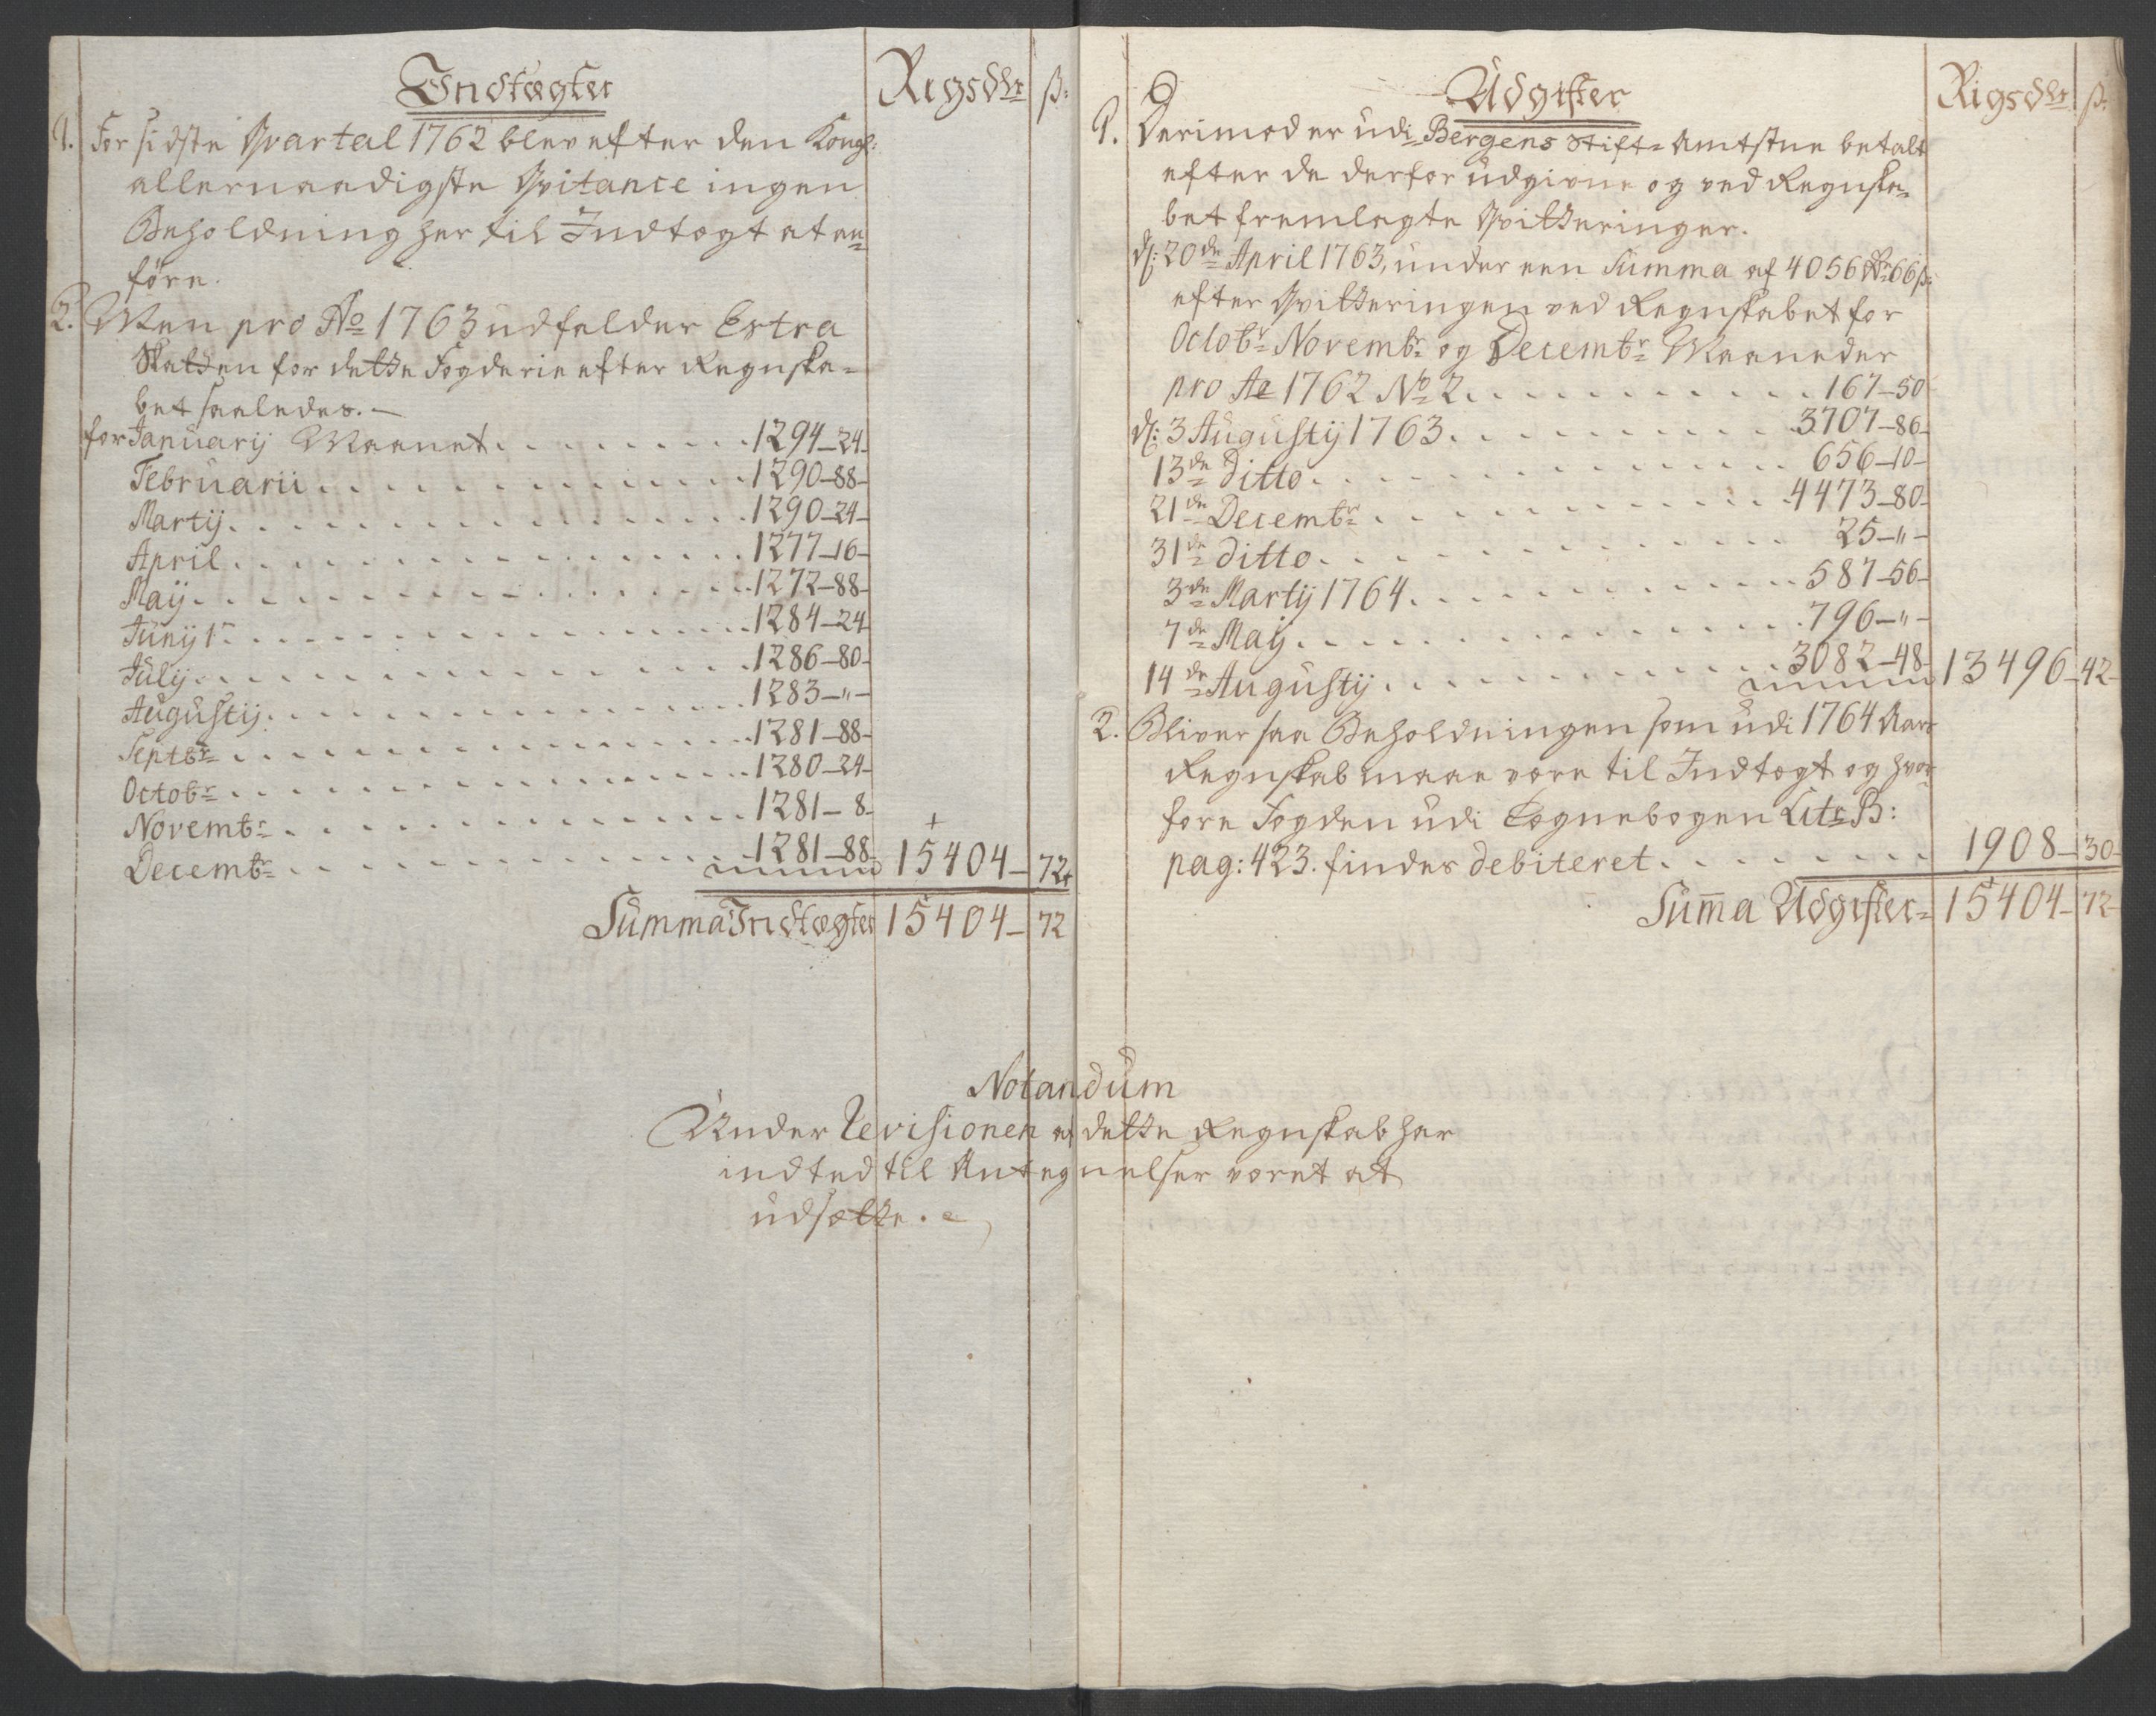 Indtægter
Rigsdlr
ß:
1. For sidste Qvartal 1762 blev efter den Kongl:
allernaadigste Qvitance ingen
Beholdning her til Indtægt at an=
føre.
2. Men pro Ao 1763 udfalder Extra
Skatten for dette Fogderie efter Regnska=
bet saaledes. —
for Januarij Maanet . . . . . . . 1294–24–
Februarii . . . . . . . . . . . 1290–88–
Martij . . . . . . . . . . . . 1290–24–
April . . . . . . . . . . . . 1277–16–
Maij . . . . . . . . . . . . 1272–88–
Junij . . . . . . . . . . . . 1284–24
Julij . . . . . . . . . . . . 1286–80–
Augustij . . . . . . . . . . . 1283–"–
Septbr . . . . . . . . . . . . 1281–88–
Octobr . . . . . . . . . . . . 1280–24–
Novembr . . . . . . . . . . . 1281–8–
Decembr . . . . . . . . . . . 1281–88– 15404–72
Summa Indtægter 15404–72
Udgifter
Rigsdlr
ß:
1. Derimod er udi Bergens Stift=Amtstue betalt
efter de derfor udgivne og ved Regnska=
bet fremlagte Qvitteringer.
d: 20de April 1763, under een Summa af 4056 Rdr 66 ß:
efter Qvitteringen ved Regnskabet for
Octobr Novembr og Decembr Maaneder
pro Ao 1762 No 2 . . . . . . . . . 167–50
d: 3 Augustij 1763 . . . . . . . . . 3707–86–
13de ditto . . . . . . . . . . . . 656–10–
21de Decembr . . . . . . . . . . . 4473–80–
31de ditto . . . . . . . . . . . . 25–"–
3de Martij 1764 . . . . . . . . . . 587–56–
7de Maij . . . . . . . . . . . . 796–"–
14de Augustij . . . . . . . . . . . 3082–48– 13496–42–
2. Bliver saa Beholdningen som udi 1764 Aars
Regnskab maae være til Indtægt og hvor=
fore Fogden udi Tegnebogen Litr B:
pag: 423. findes debiteret . . . . . . . . 1908–30–
Suma Udgifter= 15404–72–
Notandum
Under Revisionen af dette Regnskab har
indted til Antegnelser været at
udsætte.